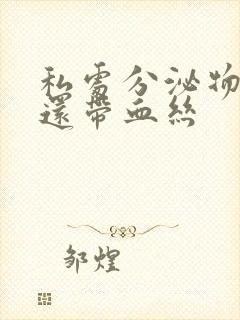 私處分泌物
還帶血絲
邹煌